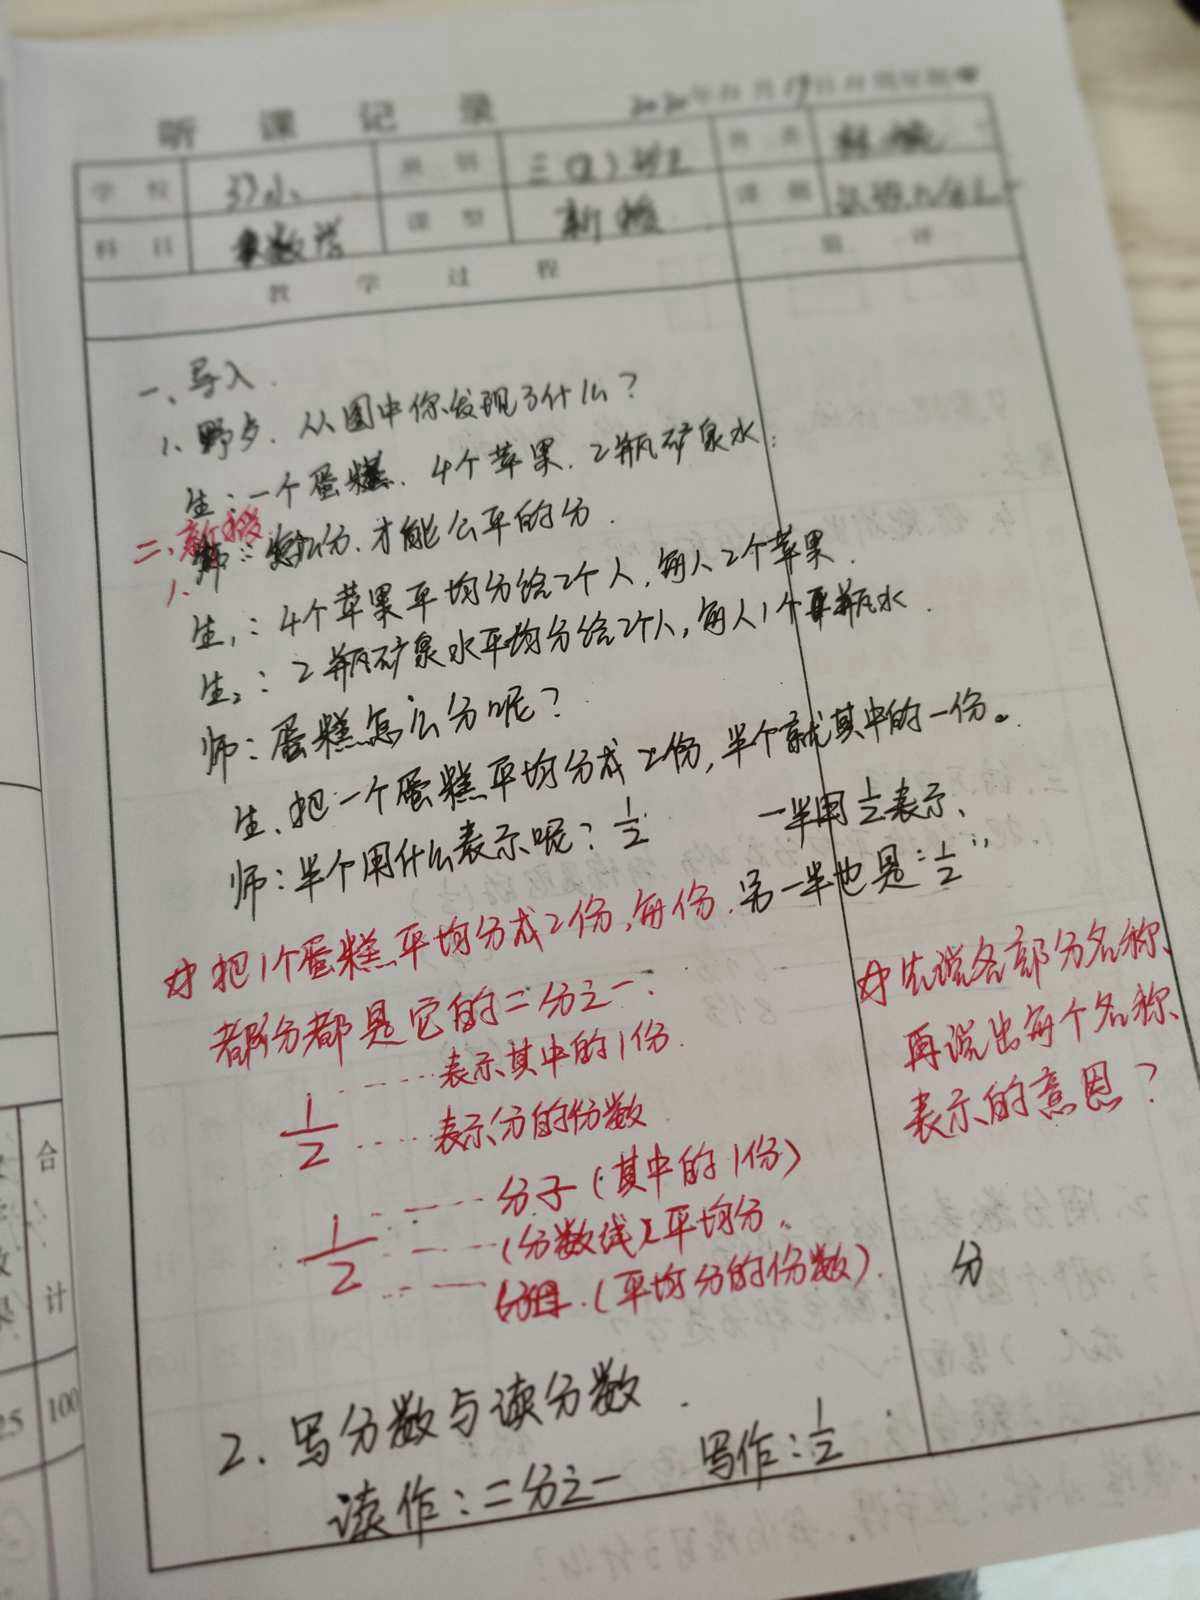 听课记录 2020年 月19日
学校 班级 三( )班
科目 数学 课型 新授 课题
教学过程
一、导入
1、野夕.从图中你发现了什么？
生：一个蛋糕、4个苹果、2瓶矿泉水；
二、新授
1、师：怎么分.才能公平的分.
生1：4个苹果平均分给2个人，每人2个苹果.
生2：2瓶矿泉水平均分给2个人，每人1个瓶水.
师：蛋糕怎么分呢？
生、把一个蛋糕平均分成2份，半个就其中的一份。
师：半个用什么表示呢？1/2 一半用1/2表示、
另一半也是“1/2”
把1个蛋糕平均分成2份，每份
都分都是它的二分之一.
1/2 表示其中的1份.
表示分的份数
1/2 分子（其中的1份）
（分数线）平均分.
分母.（平均分的份数）.
先说各部分名称、
再说出每个名称、
表示的意思？
分
2、写分数与读分数.
读作：二分之一 写作：1/2
合计
100
25